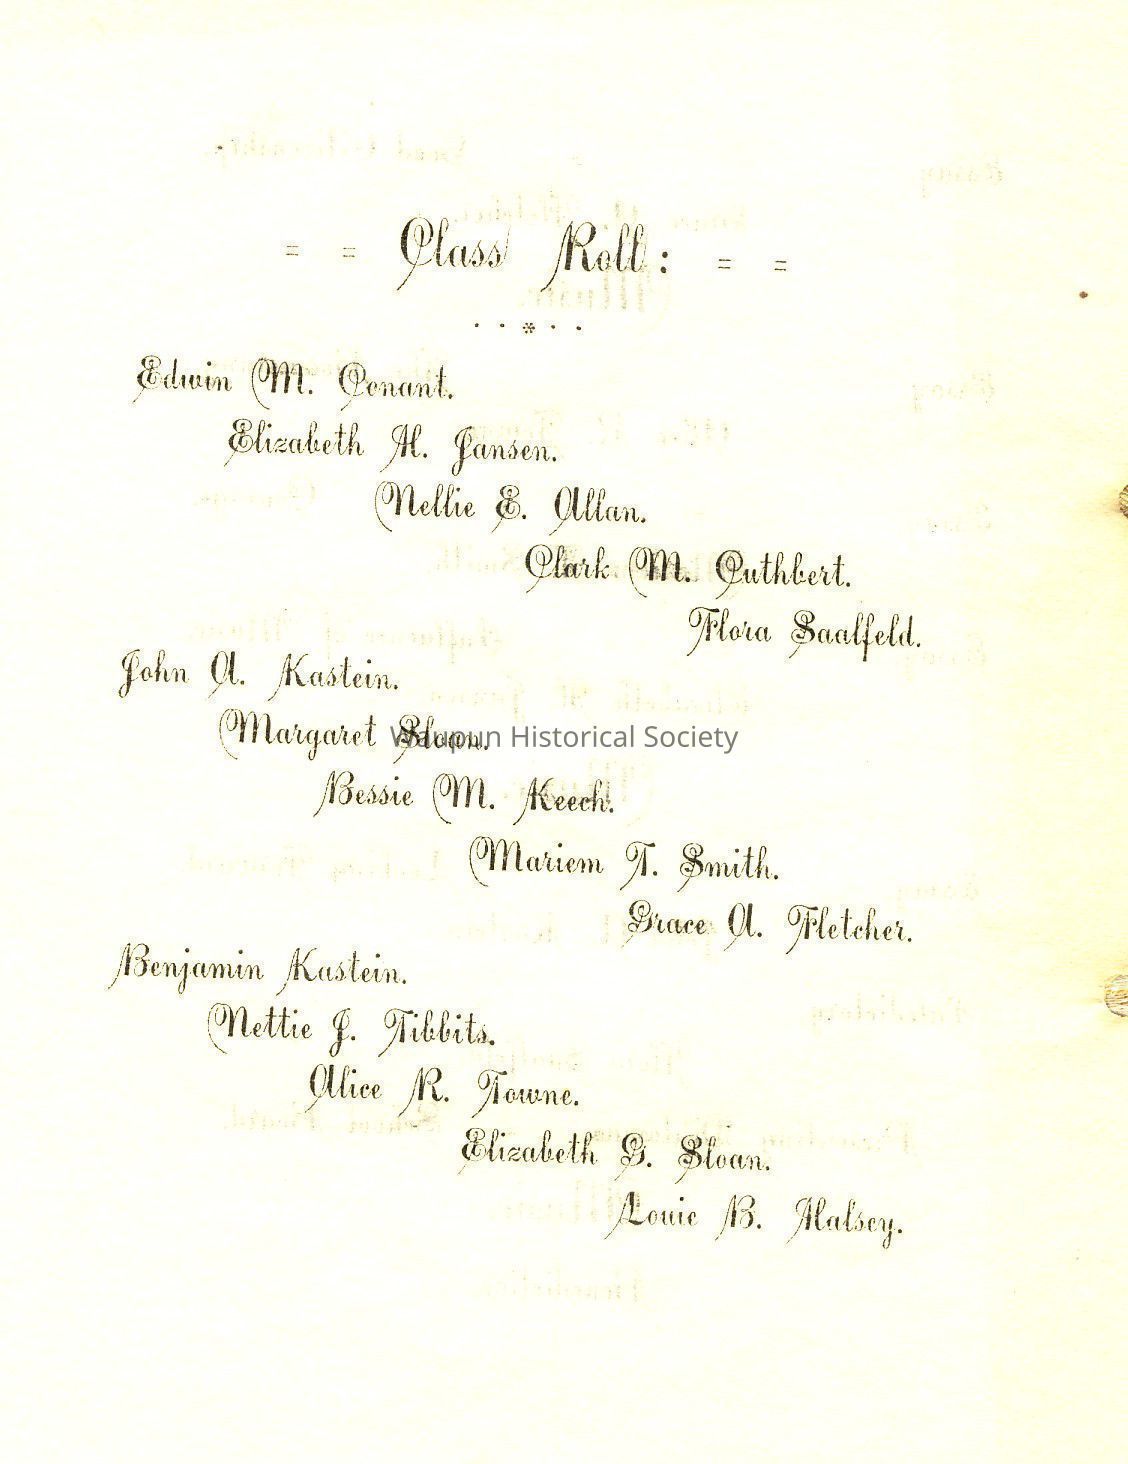 = = Class Roll: = =
. . * . .
Edwin M. Conant.
Elizabeth H. Jansen.
Nellie E. Allan.
Clark M. Cuthbert.
Flora Saalfeld.
John A. Kastein.
Margaret Sloan.
Waupun Historical Society
Bessie M. Keech.
Mariem T. Smith.
Grace A. Fletcher.
Benjamin Kastein.
Nettie J. Tibbits.
Alice R. Towne.
Elizabeth G. Sloan.
Louie B. Halsey.